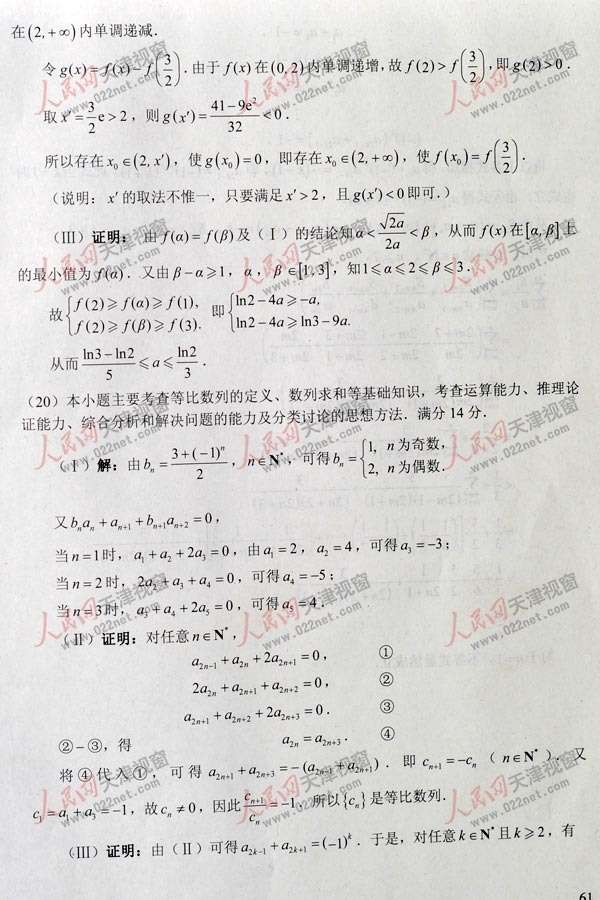 在(2,+∞)内单调递减.
令g(x)=f(x)-f(3/2).由于f(x)在(0,2)内单调递增,故f(2)>f(3/2),即g(2)>0.
取x'=3/2 e>2,则g(x')=(41-9e²)/32<0.
所以存在x₀∈(2,x'),使g(x₀)=0,即存在x₀∈(2,+∞),使f(x₀)=f(3/2).
(说明:x'的取法不惟一,只要满足x'>2,且g(x')<0即可.)
(Ⅲ)证明:由f(α)=f(β)及(Ⅰ)的结论知α<√(2a)/(2a)<β,从而f(x)在[α,β]上
的最小值为f(α).又由β-α⩾1,α,β∈[1,3],知1⩽α⩽2⩽β⩽3.
故{f(2)⩾f(α)⩾f(1), f(2)⩾f(β)⩾f(3). 即{ln2-4a⩾-a, ln2-4a⩾ln3-9a.
从而(ln3-ln2)/5⩽a⩽ln2/3.
(20)本小题主要考查等比数列的定义、数列求和等基础知识,考查运算能力、推理论
证能力、综合分析和解决问题的能力及分类讨论的思想方法.满分14分.
(Ⅰ)解:由bₙ=(3+(-1)ⁿ)/2,n∈N*,可得bₙ={1, n为奇数, 2, n为偶数.
又bₙaₙ+aₙ₊₁+bₙ₊₁aₙ₊₂=0,
当n=1时,a₁+a₂+2a₃=0,由a₁=2,a₂=4,可得a₃=-3;
当n=2时,2a₂+a₃+a₄=0,可得a₄=-5;
当n=3时,a₃+a₄+2a₅=0,可得a₅=4.
(Ⅱ)证明:对任意n∈N*,
a₂ₙ₋₁+a₂ₙ+2a₂ₙ₊₁=0, ①
2a₂ₙ+a₂ₙ₊₁+a₂ₙ₊₂=0, ②
a₂ₙ₊₁+a₂ₙ₊₂+2a₂ₙ₊₃=0. ③
②-③,得 a₂ₙ=a₂ₙ₊₃. ④
将④代入①,可得a₂ₙ₊₁+a₂ₙ₊₃=-(a₂ₙ₋₁+a₂ₙ₊₁).即cₙ₊₁=-cₙ(n∈N*).又
c₁=a₁+a₃=-1,故cₙ≠0,因此cₙ₊₁/cₙ=-1,所以{cₙ}是等比数列.
(Ⅲ)证明:由(Ⅱ)可得a₂ₖ₋₁+a₂ₖ₊₁=(-1)ᵏ.于是,对任意k∈N*且k⩾2,有
61
人民网天津视窗
www.022net.com